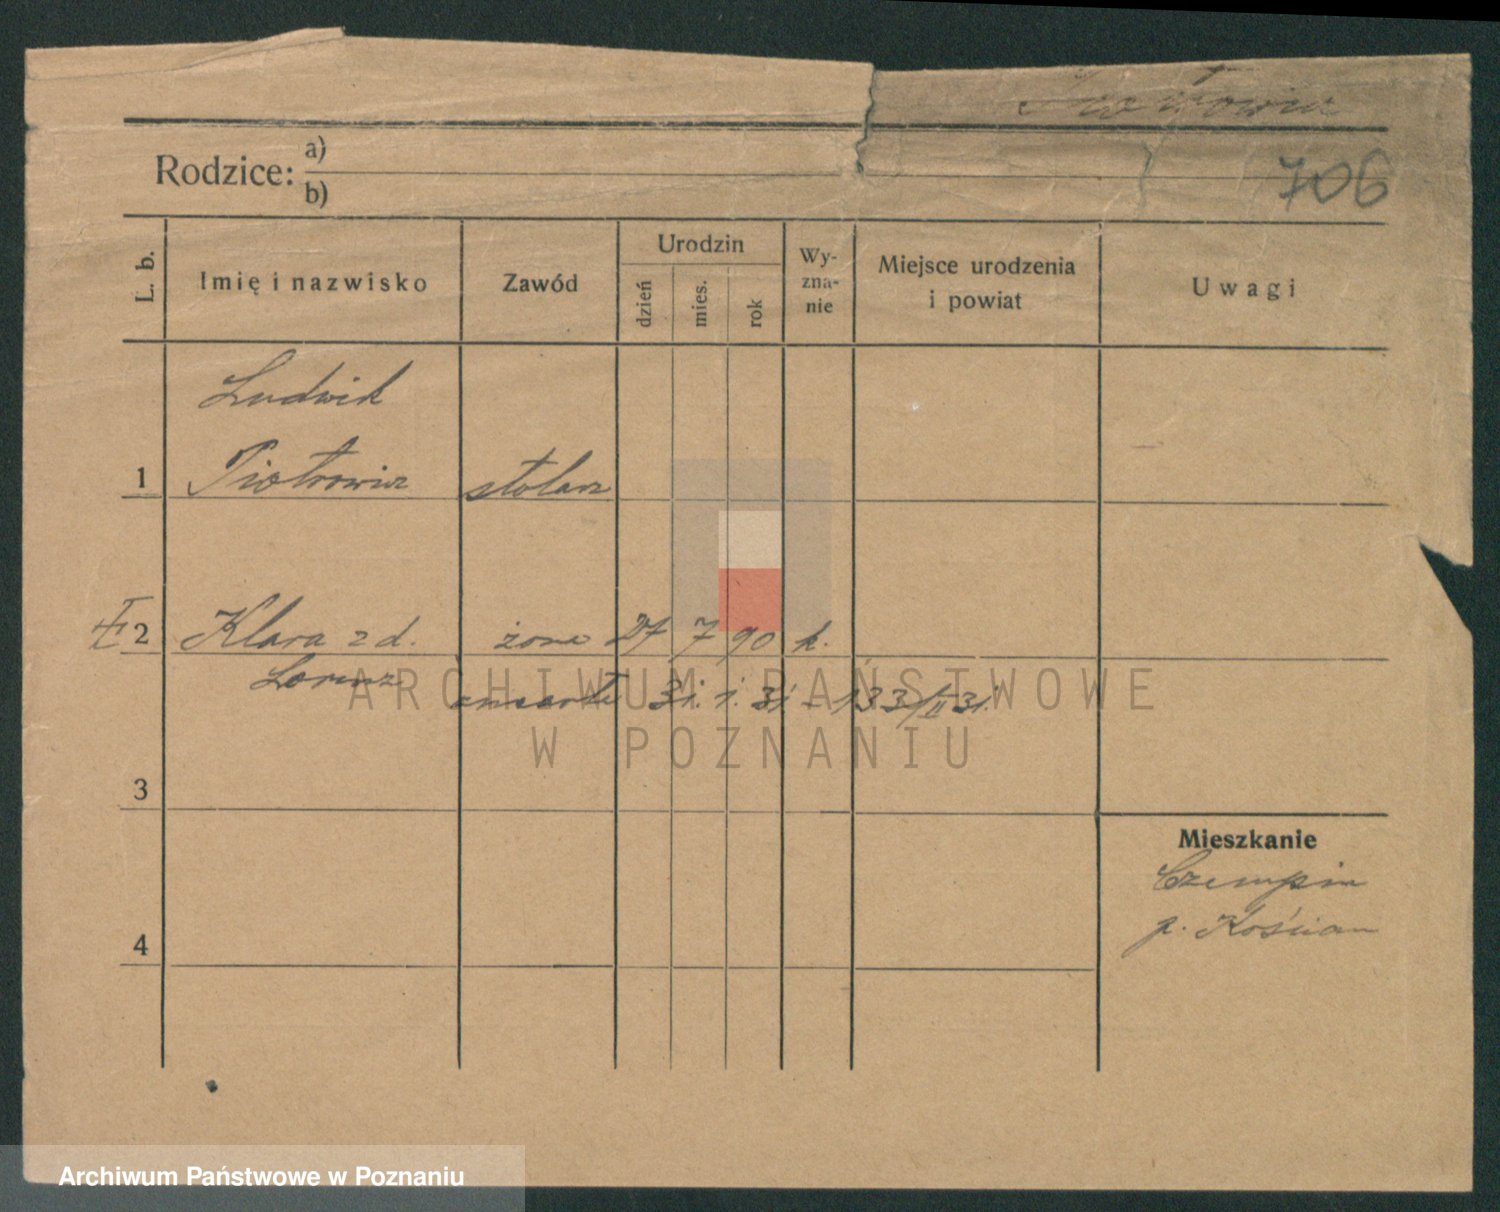 Rodzice: a)
b)
706
L. b.
Imię i nazwisko
Zawód
Urodzin
dzień
mies.
rok
Wy-
zna-
nie
Miejsce urodzenia
i powiat
Uwagi
Ludwik
1 Piotrowicz stolarz
II 2 Klara z d. żona 27 7 90 k.
Lorenz
31. 1. 31 - 133/II 31.
3
4
Mieszkanie
Czempin
p. Kościan
ARCHIWUM PAŃSTWOWE
W POZNANIU
Archiwum Państwowe w Poznaniu